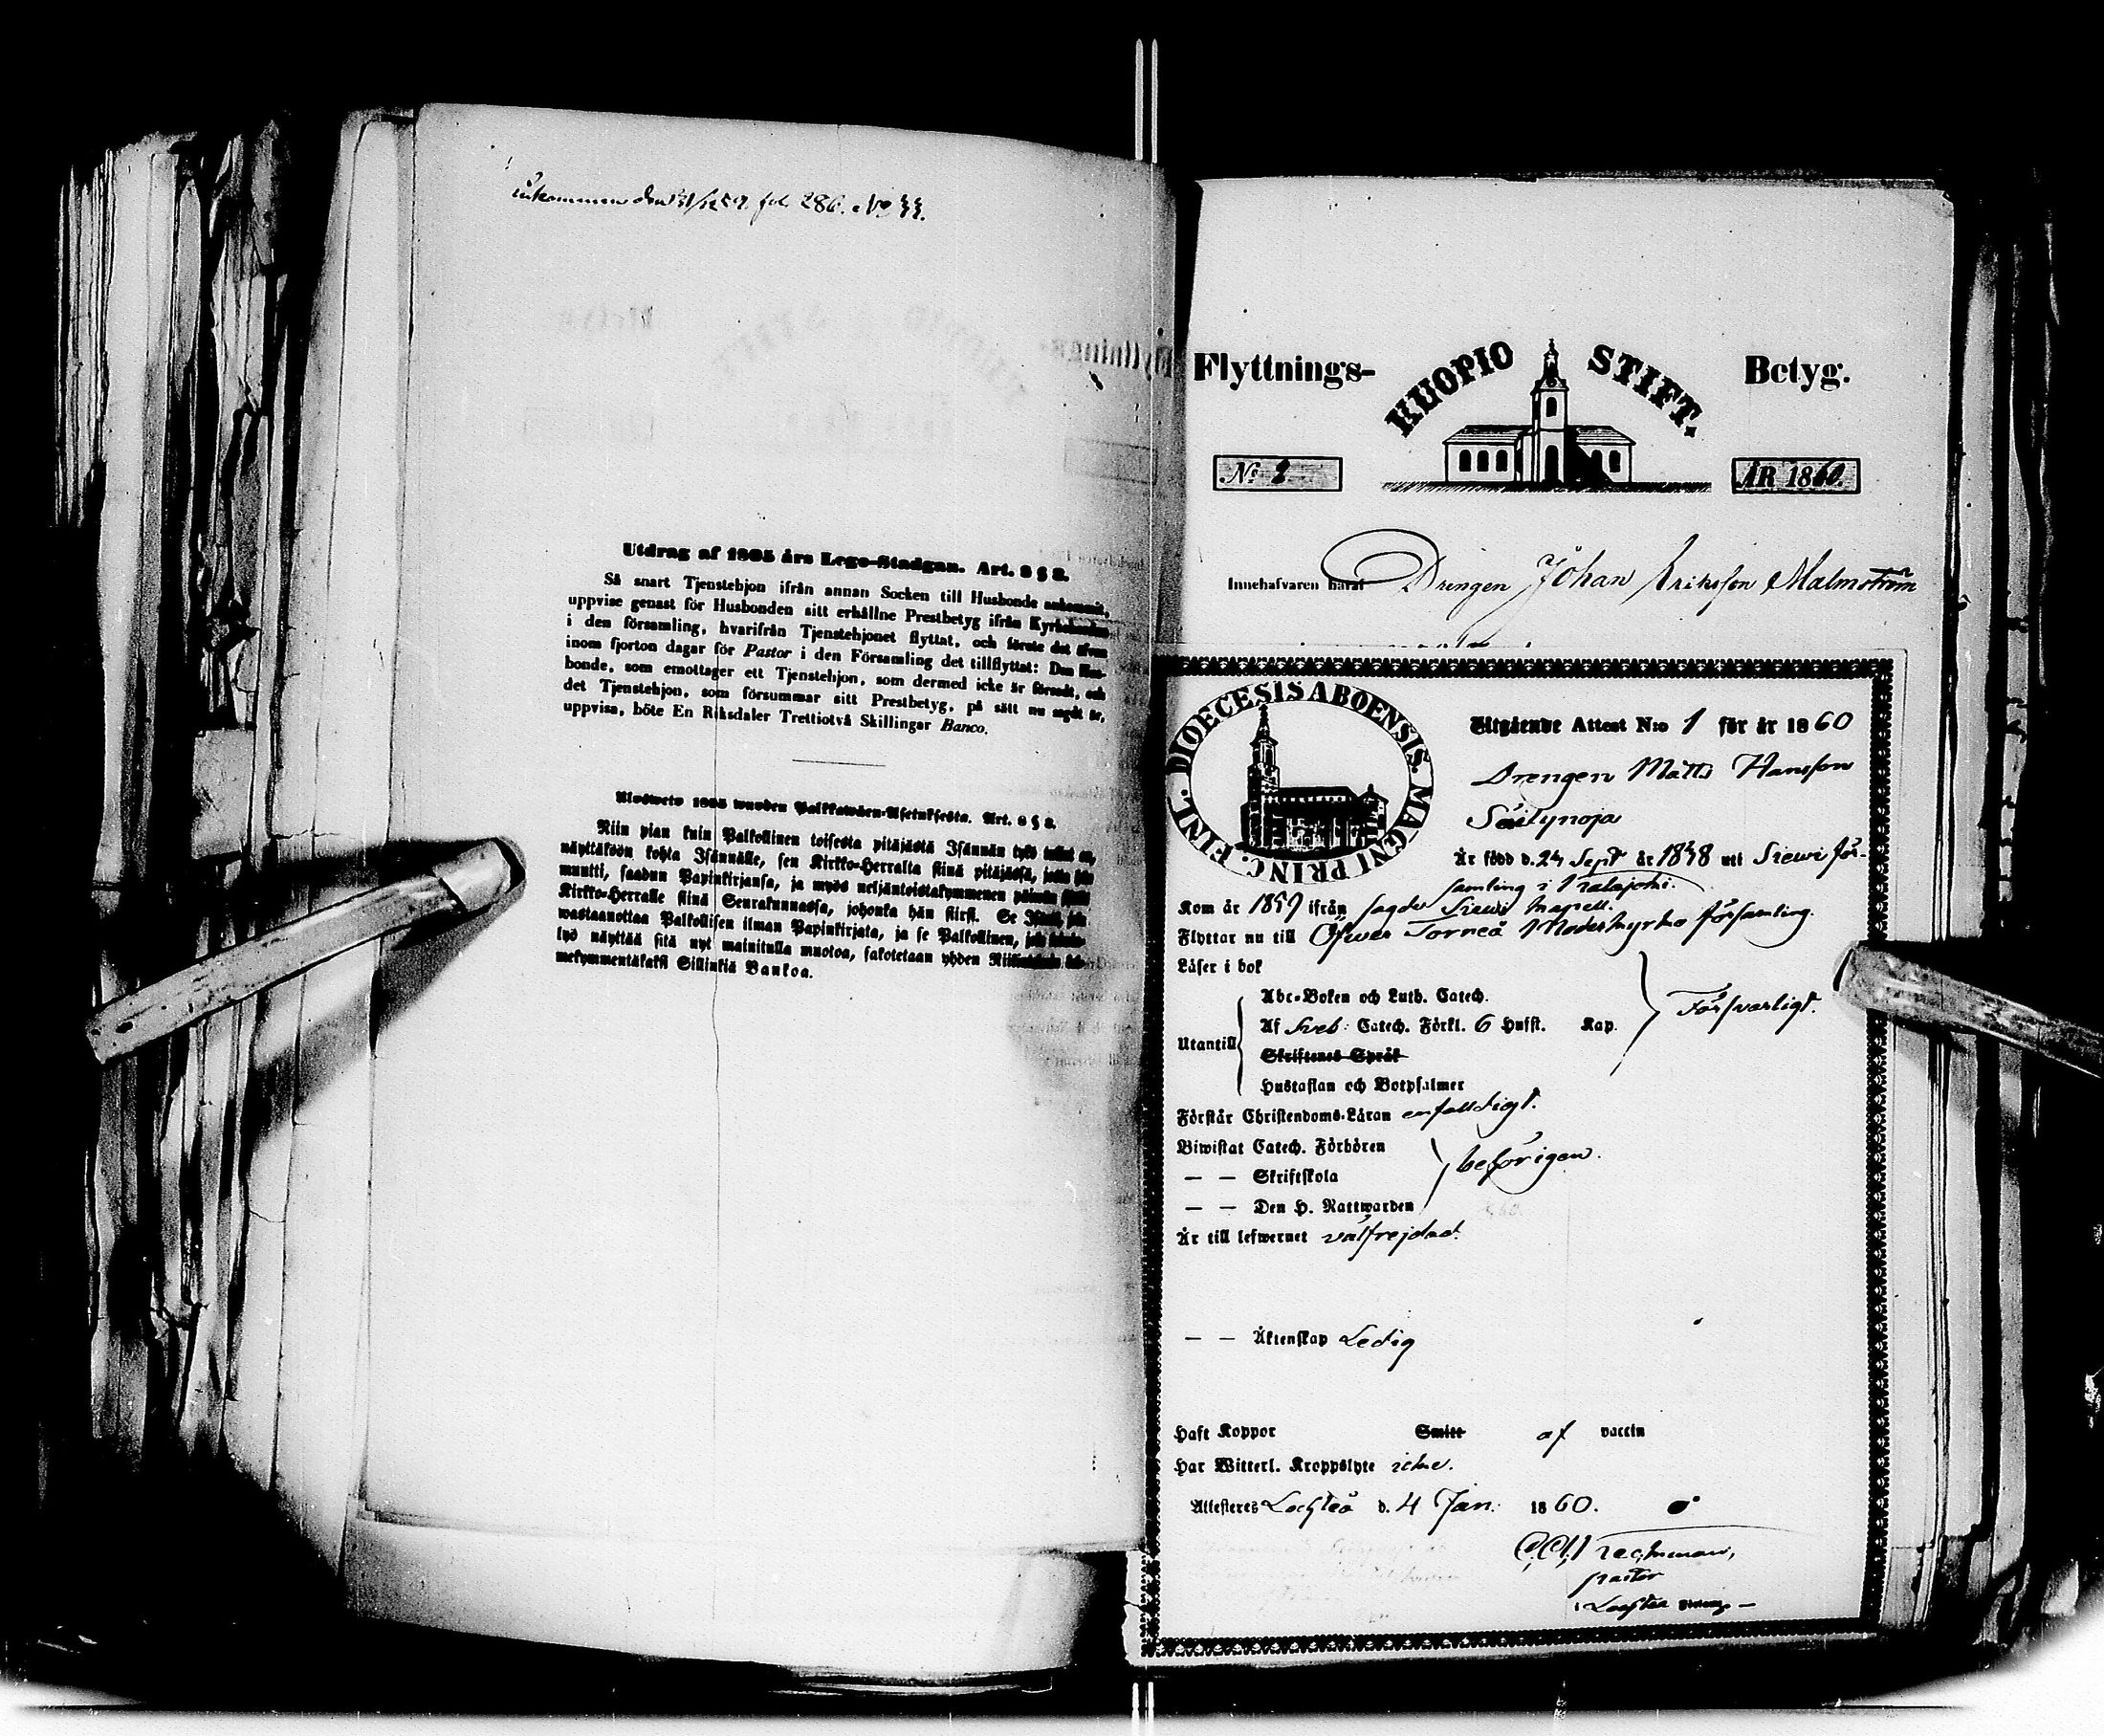 inkommen den 31/12 59. fol. 286. No 33.
Utdrag af 1805 års Lego-Stadgan. Art. 8 § 8.
Så snart Tjenstehjon ifrån annan Socken till Husbonde ankommit,
uppvise genast för Husbonden sitt erhållne Prestbetyg ifrån
i den församling, hvarifrån Tjenstehjonet flyttat, och förete det äfven
inom fjorton dagar för Pastor i den Församling det tillflyttat: Den Hus-
bonde, som emottager ett Tjenstehjon, som dermed icke är försedt, och
det Tjenstehjon, som försummar sitt Prestbetyg, på sätt nu sagdt är,
uppvisa, böte En Riksdaler Trettiotvå Skillingar Banco.
Ulosweto 1805 wuoden Palkkawäen-Asetuksesta. Art. 8 § 8.
Niin pian kuin Palkollinen toisesta pitäjästä Isännän tykö tullut on,
näyttäköön kohta Isännälle, sen Kirkko-Herralta siinä pitäjässä, josta hän
muutti, saadun Papinkirjansa, ja myös neljäntoistakymmenen päiwän
Kirkko-Herralle siinä Seurakunnassa, johonka hän siirsi. Se Isäntä, joka
wastaanottaa Palkollisen ilman Papinkirjata, ja se Palkollinen, joka
lyö näyttää sitä nyt mainitulla muotoa, sakotetaan yhden
mekymmentäkaksi Sillinkiä Bankoa.
Flyttnings- KUOPIO STIFT. Betyg.
No 2 ÅR 1860.
Innehafvaren häraf Drengen Johan Eriksson Malmström
DIOECESIS ABOENSIS. MAGNI PRINC. FINL.
Utgående Attest N:o 1 för år 1860
Drengen Matts Hansson
Säilynoja
Är född d. 24 Sept år 1838 uti Siewi för-
samling i Kalajoki.
Kom år 1859 ifrån sagde Siewi Kapell.
Flyttar nu till Öfwer Torneå Moderkyrko församling.
Läser i bok
Abc-Boken och Luth. Catech.
Af Sveb: Catech. Förkl. 6 Hufst. Kap.
Försvarligt.
Utantill
Skriftenes Språk
Hustaflan och Botpsalmer
Förstår Christendoms-Läran enfaldigt.
Biwistat Catech. Förhören
— — Skriftskola
behörigen.
— — Den H. Nattwarden
Är till lefwernet välfrejdad.
— — Äktenskap Ledig
Haft Koppor Smitt af vaccin
Har Witterl. Kroppslyte icke.
Attesteres Lochteå d. 4 Jan: 1860.
pastor
i Lochteå